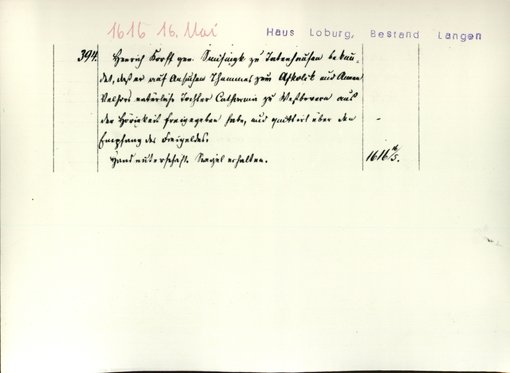 1616 16. Mai
Haus Loburg, Bestand Langen
394. Henrich Korff gen. Smisingk zu Tatenhausen bekun-
det, daß er auf Ansuchen Thammes zum und Annen
natürliche Tochter Catharina zu Westbevern aus
der Hörigkeit freigegeben habe, und quittirt über den -
Empfang des Freigeldes.
Handunterschrift. Siegel erhalten. 1616 16/5.